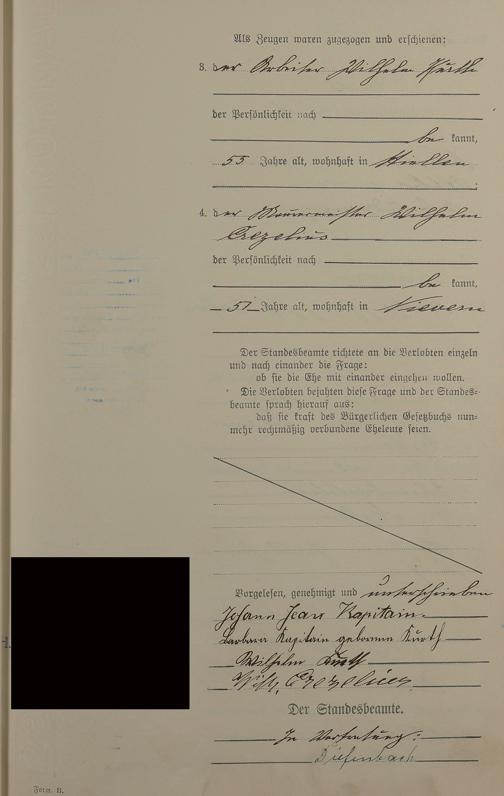 Als Zeugen waren zugezogen und erschienen:
3. der Arbeiter Wilhelm Kurth
der Persönlichkeit nach
be kannt,
55 Jahre alt, wohnhaft in Miellen
4. der Maurermeister Wilhelm
Crezelius
der Persönlichkeit nach
be kannt,
51 Jahre alt, wohnhaft in Nievern
Der Standesbeamte richtete an die Verlobten einzeln
und nach einander die Frage:
ob sie die Ehe mit einander eingehen wollen.
Die Verlobten bejahten diese Frage und der Standes-
beamte sprach hierauf aus:
daß sie kraft des Bürgerlichen Gesetzbuchs nun-
mehr rechtmäßig verbundene Eheleute seien.
Vorgelesen, genehmigt und unterschrieben
Johann Jean Kapitain.
Barbara Kapitain geborene Kurth
Wilhelm Kurth
Wilh. Crezelius
Der Standesbeamte.
In Vertretung:
Diefenbach
Form. B.